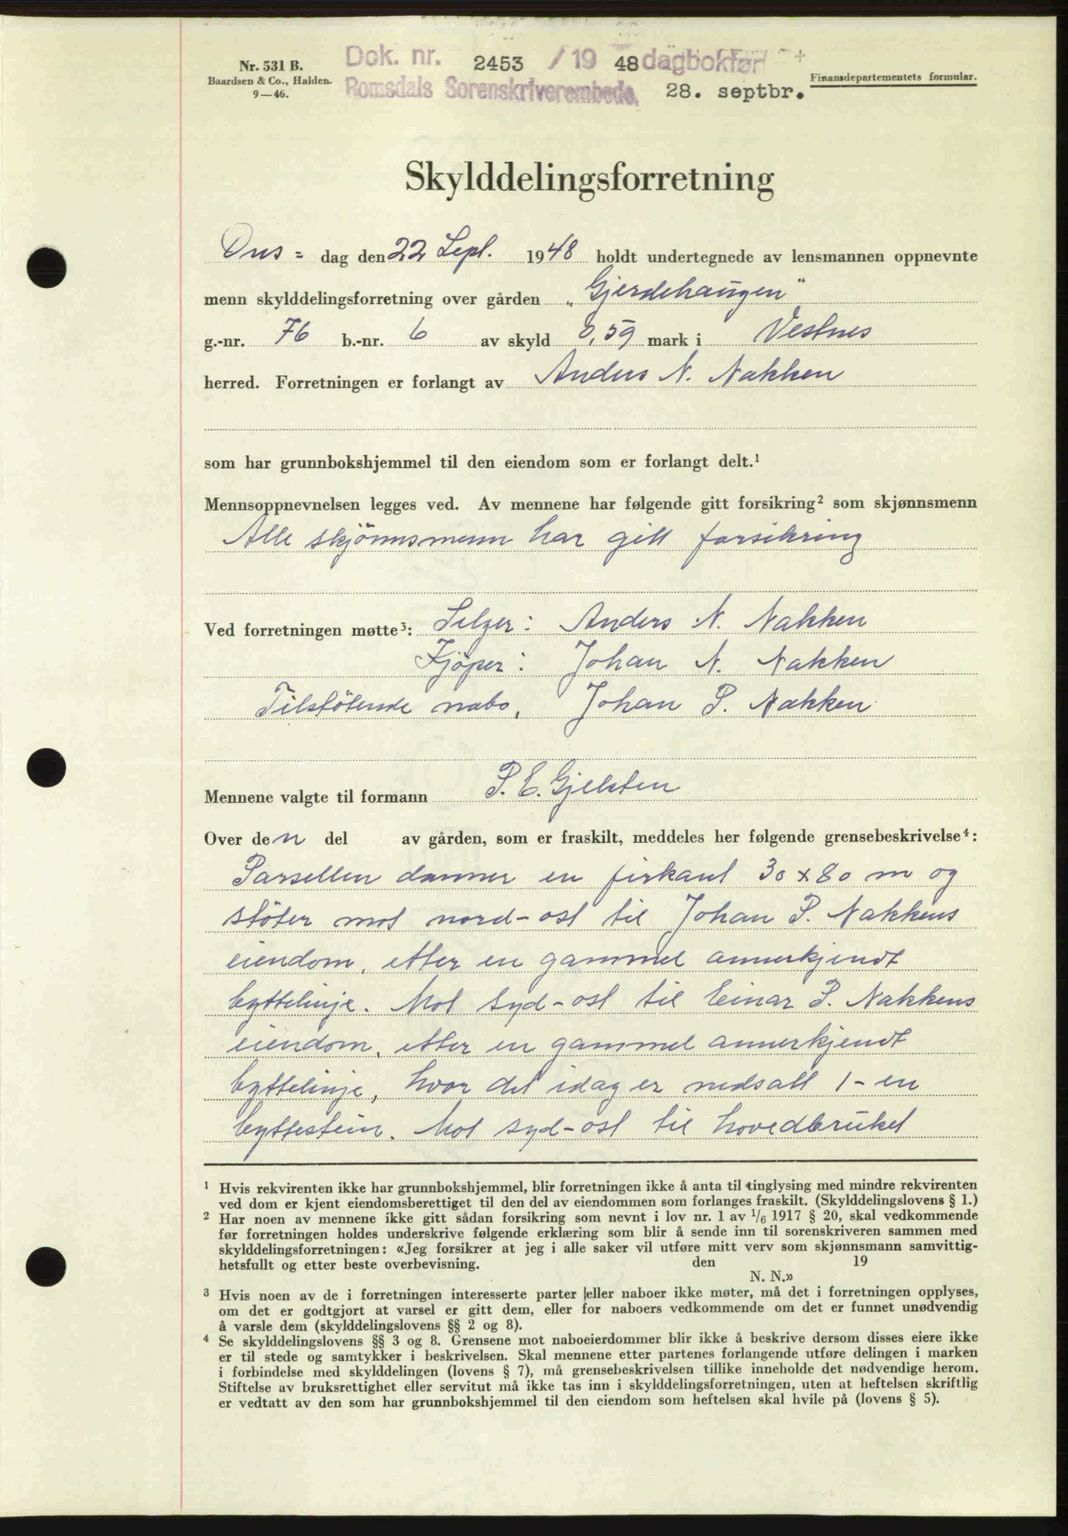 Nr. 531 B.
Baardsen & Co., Halden.
9—46.
Dok. nr. 2453 /19 48 dagbokført
Romsdals Sorenskriverembede. 28. septbr.
Finansdepartementets formular.
Skylddelingsforretning
Ons= dag den 22 Sept. 1948 holdt undertegnede av lensmannen oppnevnte
menn skylddelingsforretning over gården „Gjerdehaugen"
g.-nr. 76 b.-nr. 6 av skyld 0,59 mark i Vestnes
herred. Forretningen er forlangt av Anders N. Nakken
som har grunnbokshjemmel til den eiendom som er forlangt delt.¹
Mennsoppnevnelsen legges ved. Av mennene har følgende gitt forsikring² som skjønnsmenn
Alle skjönnsmenn har gitt forsikring
Ved forretningen møtte³: Selger: Anders N. Nakken
Kjöper: Johan N. Nakken
Tilstötende nabo, Johan P. Nakken
Mennene valgte til formann P. E. Gjelsten
Over den del av gården, som er fraskilt, meddeles her følgende grensebeskrivelse⁴:
Parsellen danner en firkant 30 x 80 m og
stöter mot nord-ost til Johan P. Nakkens
eiendom, etter en gammel annerkjendt
byttelinje. Mot syd-ost til Einar P. Nakkens
eiendom, etter en gammel annerkjendt
byttelinje, hvor det idag er nedsatt 1- en
byttestein. Mot syd-ost til hovedbruket
¹ Hvis rekvirenten ikke har grunnbokshjemmel, blir forretningen ikke å anta til tinglysing med mindre rekvirenten
ved dom er kjent eiendomsberettiget til den del av eiendommen som forlanges fraskilt. (Skylddelingslovens § 1.)
² Har noen av mennene ikke gitt sådan forsikring som nevnt i lov nr. 1 av ¹/₆ 1917 § 20, skal vedkommende
før forretningen holdes underskrive følgende erklæring som blir å sende inn til sorenskriveren sammen med
skylddelingsforretningen: «Jeg forsikrer at jeg i alle saker vil utføre mitt verv som skjønnsmann samvittig-
hetsfullt og etter beste overbevisning. den 19
N. N.»
³ Hvis noen av de i forretningen interesserte parter eller naboer ikke møter, må det i forretningen opplyses,
om det er godtgjort at varsel er gitt dem, eller for naboers vedkommende om det er funnet unødvendig
å varsle dem (skylddelingslovens §§ 2 og 8).
⁴ Se skylddelingslovens §§ 3 og 8. Grensene mot naboeierdommer blir ikke å beskrive dersom disses eiere ikke
er til stede og samtykker i beskrivelsen. Skal mennene etter partenes forlangende utføre delingen i marken
i forbindelse med skylddelingen (lovens § 7), må grensebeskrivelsen tillike inneholde det nødvendige herom.
Stiftelse av bruksrettighet eller servitut må ikke tas inn i skylddelingsforretningen, uten at heftelsen skriftlig
er vedtatt av den som har grunnbokshjemmel til den eiendom som heftelsen skal hvile på (lovens § 5).